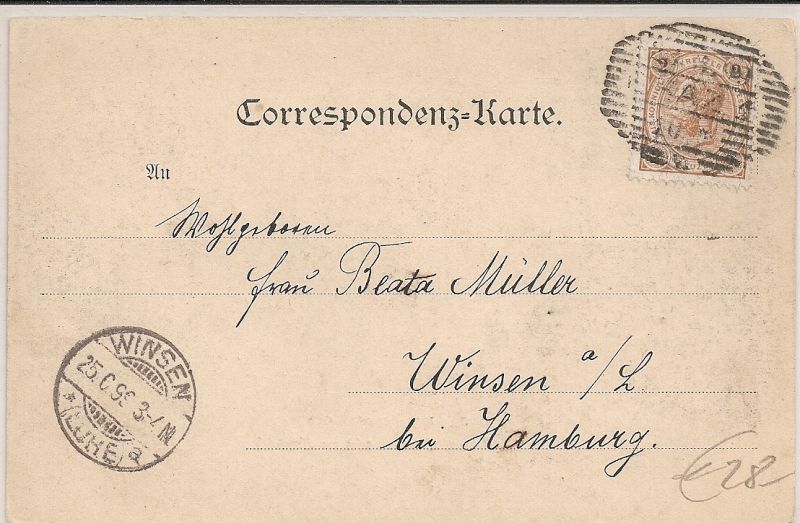 Correspondenz-Karte.
2 2
An
Wohlgeboren
Frau Beata Müller
Winsen a/L
bei Hamburg.
WINSEN
(LUHE)
€28